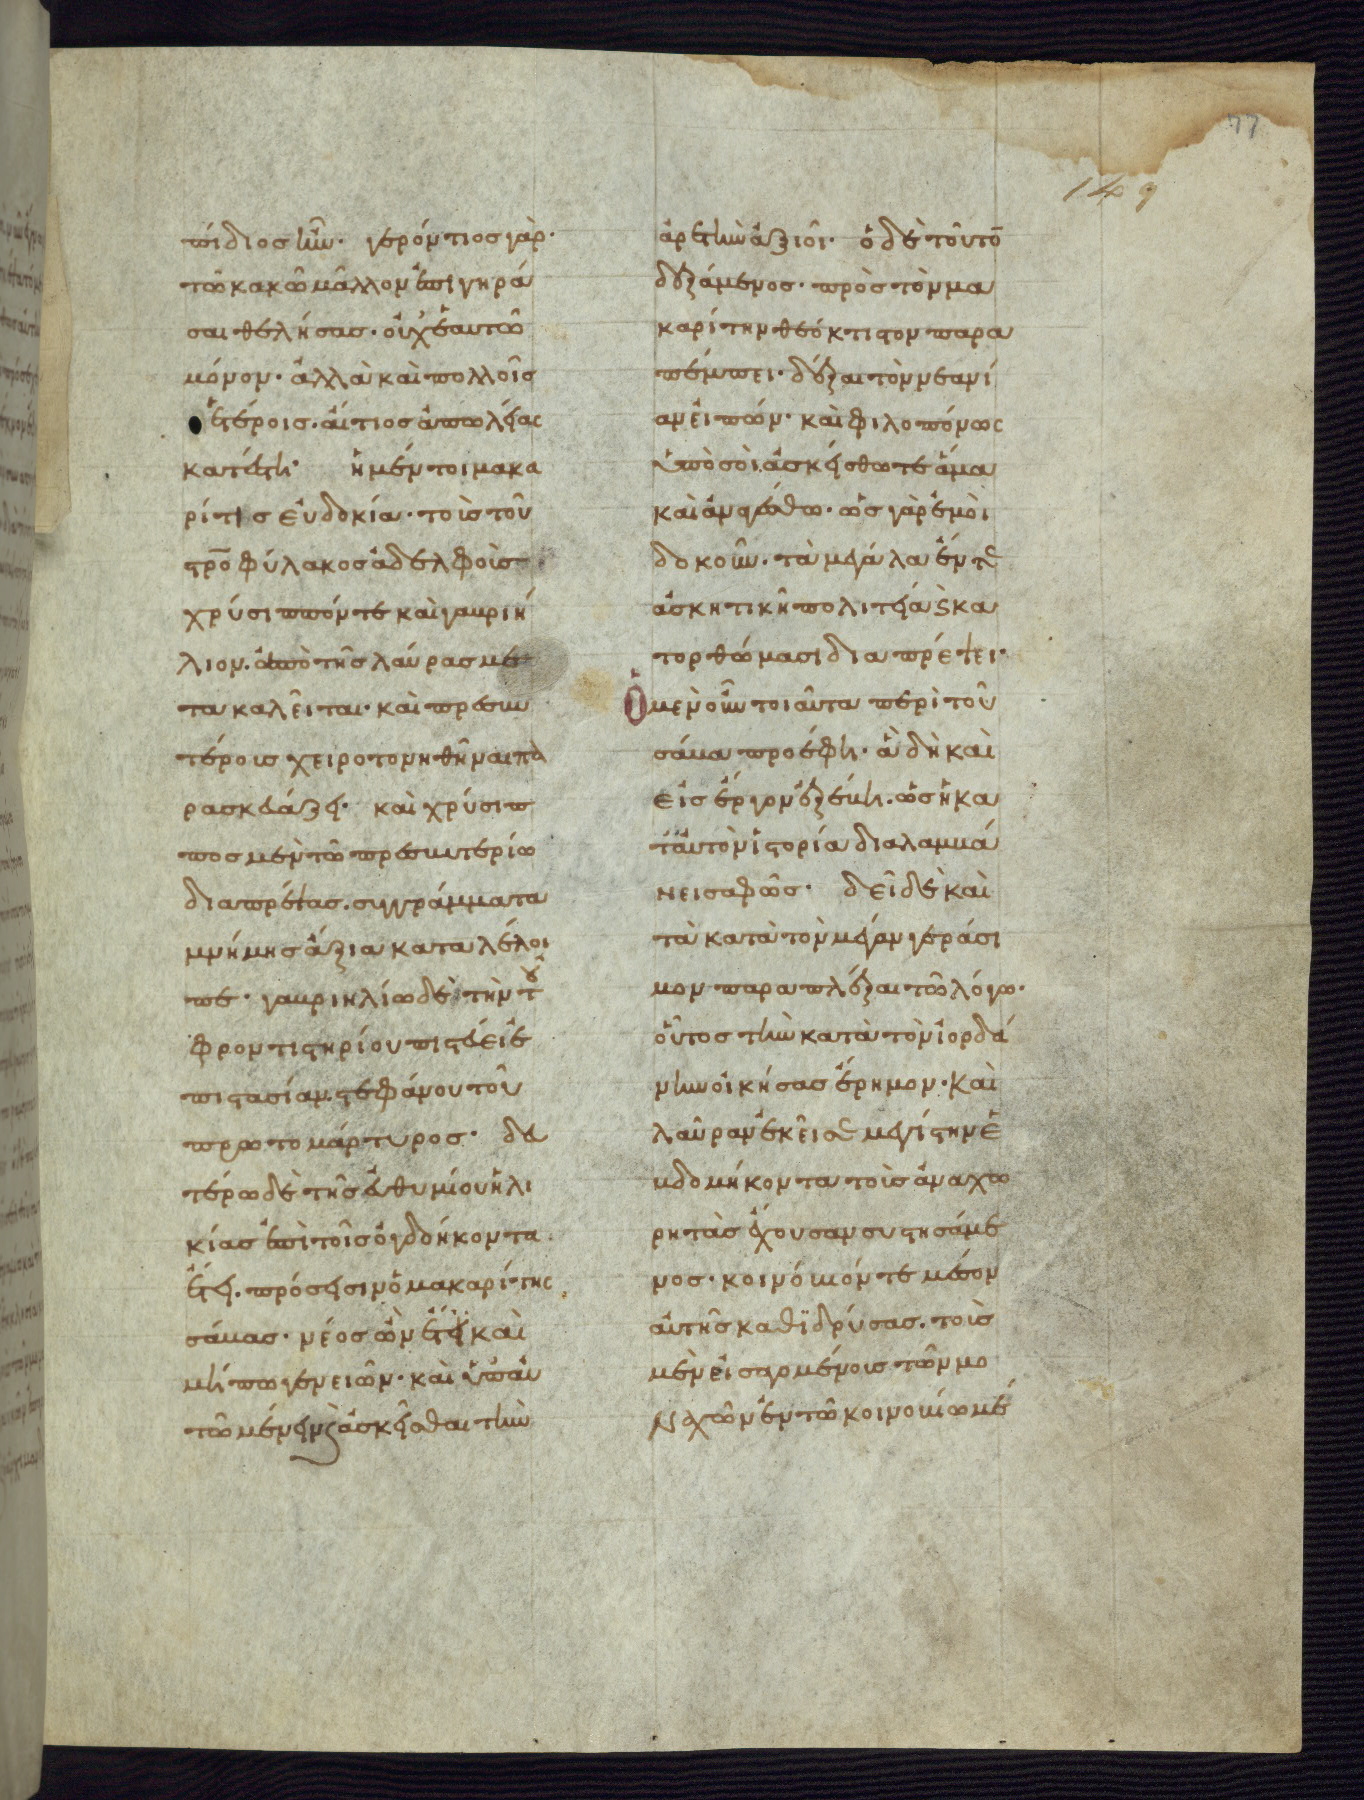 77
149
πίδιος ἦν. γερόντιος γὰρ.
τῶ κακῶ μᾶλλον ἐπιγηρά
σαι θελήσας. οὐχ ἑαυτῶ
μόνον. ἀλλὰ καὶ πολλοῖς
ἑτέροις. αἴτιος ἀπωλείας
κατέστη. ἡ μέντοι μακα
ρίτις εὐδοκία. τοῖς τοῦ
στρο φύλακος ἀδελφοῖς
χρύσιππόν τε καὶ γαυριή
λιον. ἀπὸ τῆς λαύρας με
τακαλεῖται. καὶ πρεσβυ
τέροις χειροτονηθῆναι πα
ρασκευάζει. καὶ χρύσιπ
πος μὲν τῶ πρεσβυτερίω
διαπρέψας. συγγράμματα
μνήμης ἄξια καταλέλοι
πε. γαυριηλίω δὲ τὴν τοῦ
φροντιστηρίου πιστεύει ἐ
πιστασίαν. στεφάνου τοῦ
πρωτομάρτυρος. δευ
τέρω δὲ τῆς εὐθυμίου ἡλι
κίας ἐπὶ τοῖς ὀγδοήκοντα
ἔτει. πρόσεισιν ὁ μακαρίτης
σάβας. νέος ὢν ἔτι καὶ
μήπω γενειῶν. καὶ ὑπ' αὐ
τῶ μένειν καὶ ἀσκεῖσθαι τὴν
ἀρετὴν ἀξιοῖ. ὁ δὲ τοῦτο
δεξάμενος. πρὸς τὸν μα
καρίτην θεόκτιστον παρα
πέμπει. δέξαι τὸν νεανί
αν εἰπών. καὶ φιλοπόνως
ὑπὸ σοὶ ἀσκείσθω τε ἅμα
καὶ ἀναγέσθω. ὡς γὰρ ἐμοὶ
δοκοῦν. τὰ μεγάλα ἐν τῆ
ἀσκητικῆ πολιτεία κα
τορθώμασι διαπρέψει.
Ὁ μὲν οὖν τοιαῦτα περὶ τοῦ
σάβα προέφη. ἃ δὴ καὶ
εἰς ἔργον ἐξέβη. ὡς ἡ κα
τ' αὐτὸν ἱστορία διαλαμβά
νει σαφῶς. δεῖ δὲ καὶ
τὰ κατὰ τὸν μέγαν γεράσι
μον παραπλέξαι τῶ λόγω.
οὗτος τὴν κατὰ τὸν ἰορδά
νην οἰκήσας ἔρημον. καὶ
λαύραν ἐκεῖσε μεγίστην ἑ
βδομήκοντα τοῖς ἀναχω
ρητὰς ἔχουσαν συστησάμε
νος. κοινόβιόν τε μέσον
αὐτῆς καθϊδρύσας. τοῖς
μὲν εἰσαγομένοις τῶν μο
ναχῶν ἐν τῶ κοινοβίω μέ